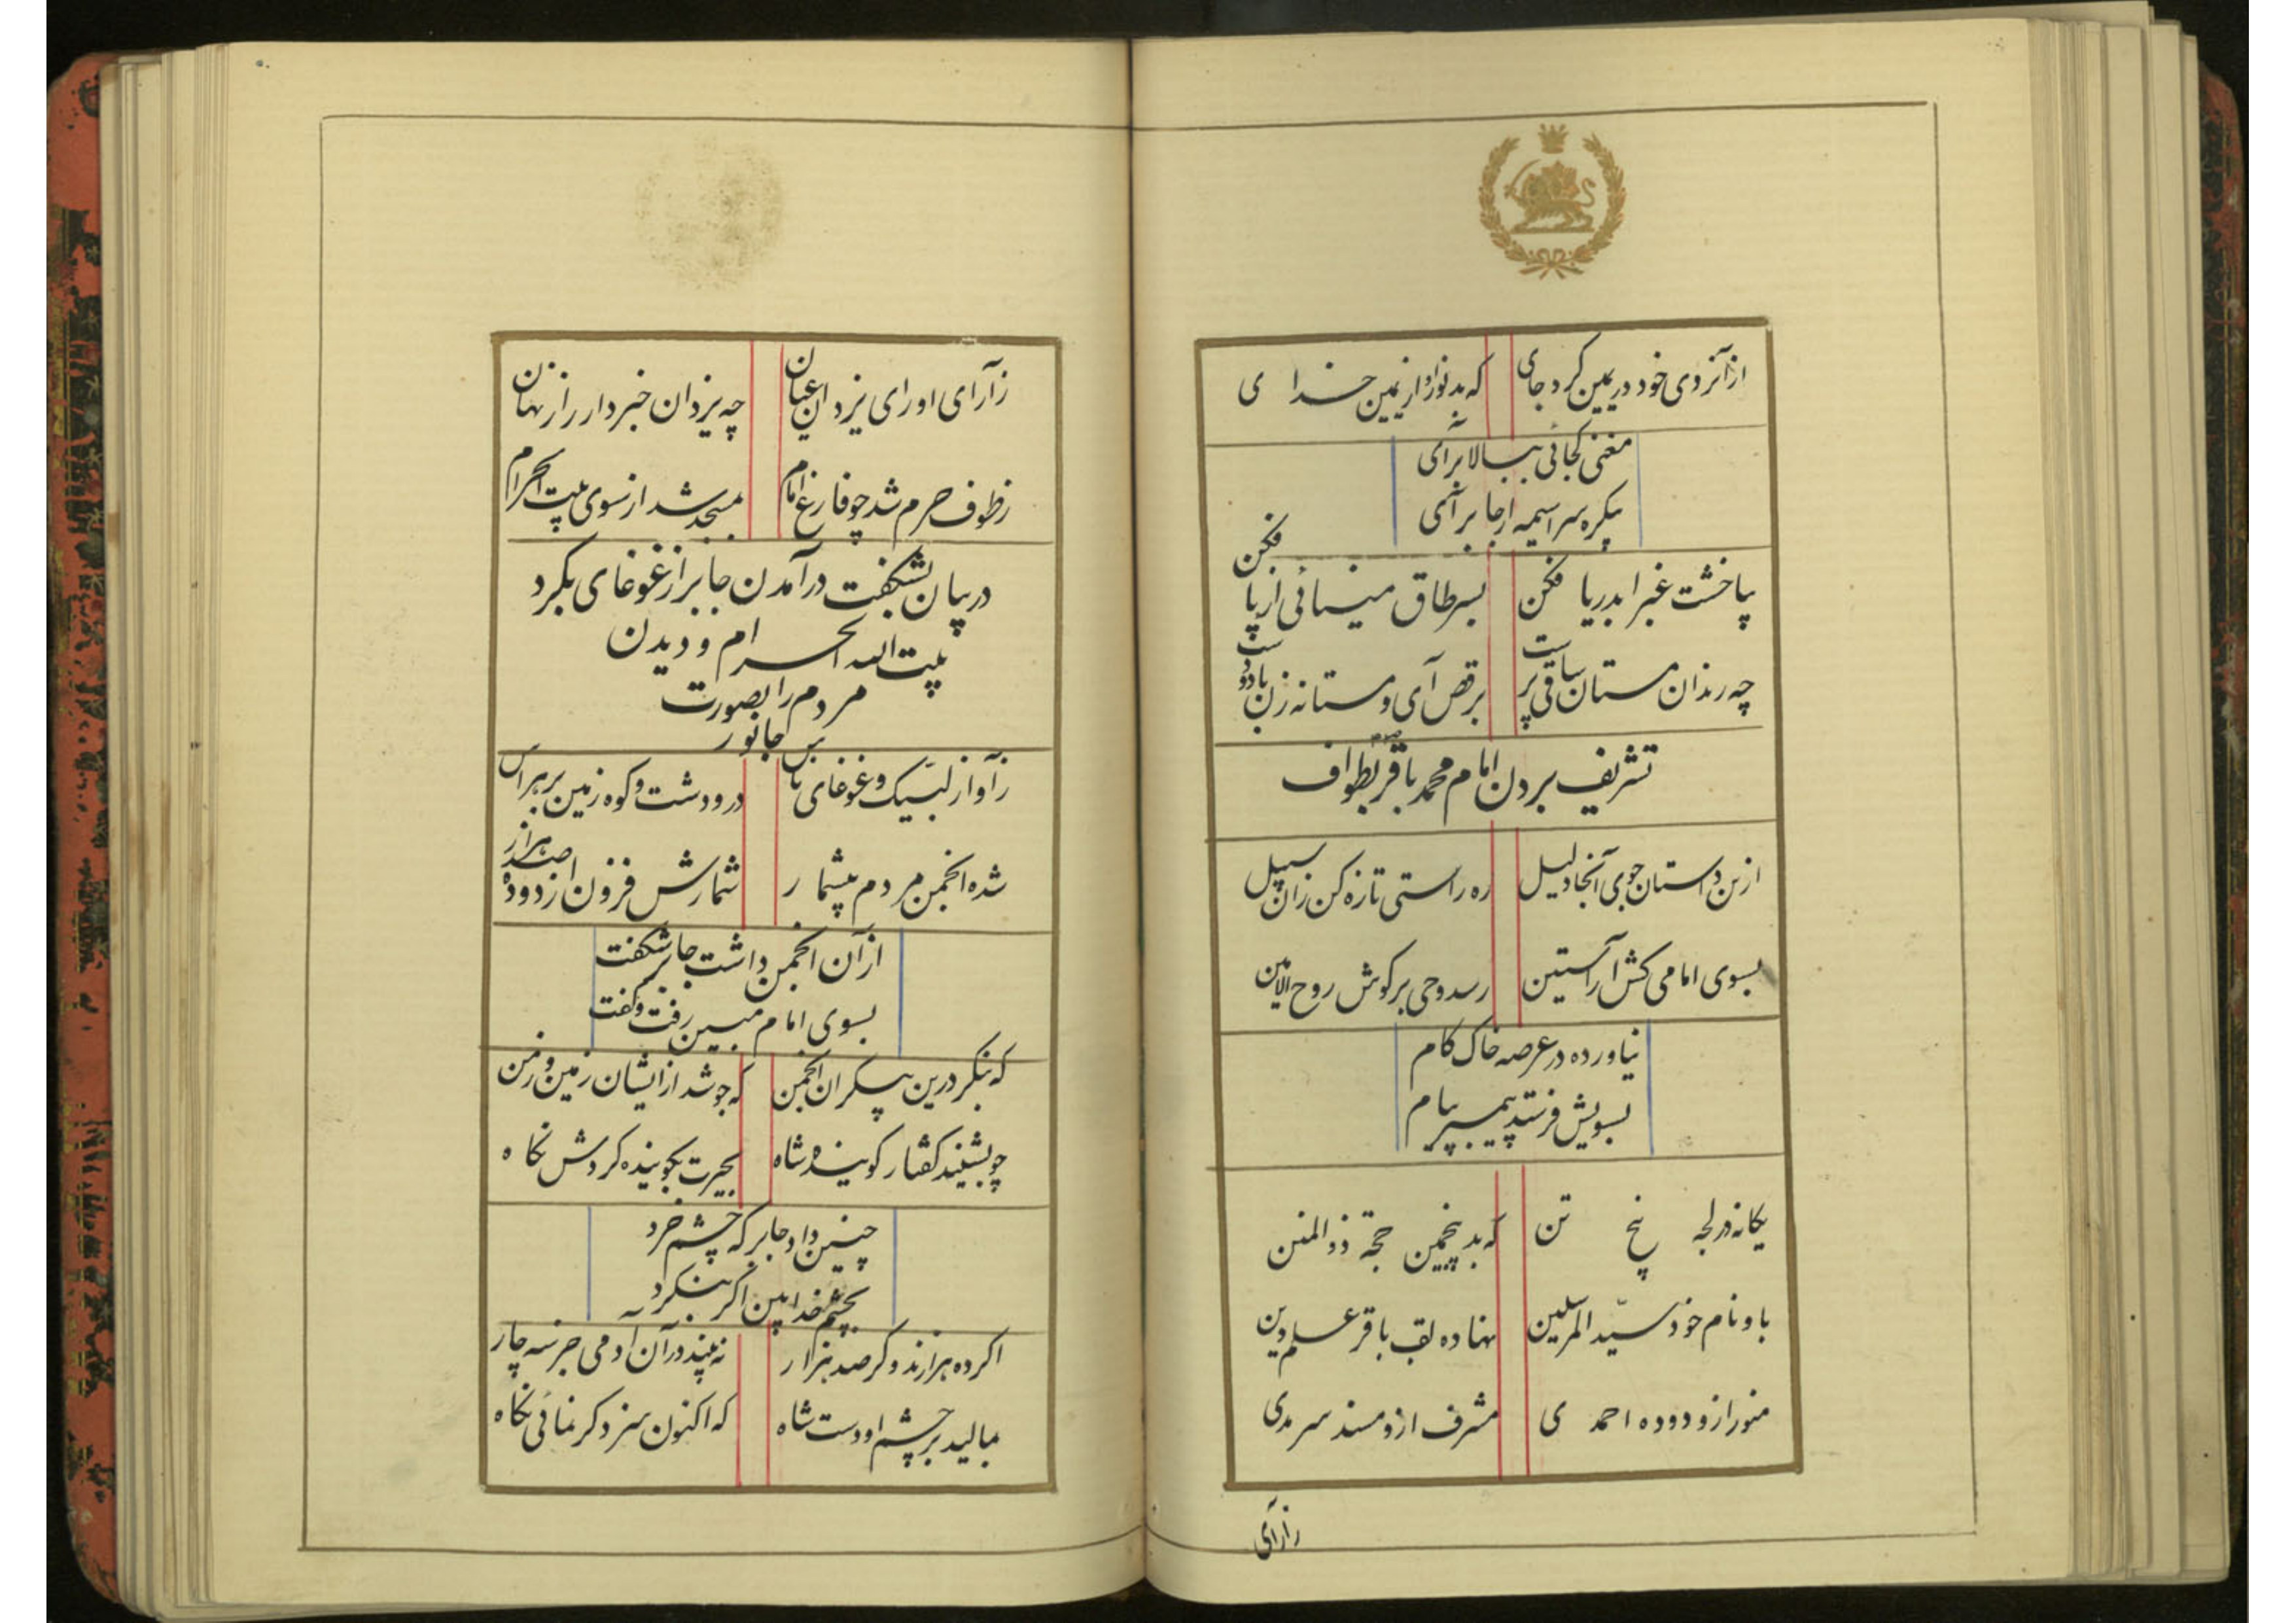 از آنرو دی خود در یمین کرد جای که بد نور او از یمین خدای
مغنی کجائی ببالا برآی
یکره سراسیمه از جا برآی
بیا خشت غبرا بدریا فکن بسر طاق مینائی از پا فکن
چه رندان مستان ساقی پرست برقص آی و مستانه زن با دو دست
تشریف بردن امام محمد باقر بطواف
ازین داستان جوی آنجا دلیل ره راستی تازه کن زان سبیل
بسوی امامی کش از آستین رسد وحی بر گوش روح الامین
نیاورده در عرصه خاک کام
بسویش فرستد پیمبر پیام
یکانه در لجه پنج تن که بد پنجمین حجة ذوالمنن
باو نام خود سید المرسلین نهاده لقب باقر علم دین
منور ازو دوده احمدی مشرف ازو مسند سرمدی
زآرای
زآرای او رای یزدان عیان چه یزدان خبردار راز نهان
زطوف حرم شد چو فارغ امام بمسجد شد از سوی بیت الحرام
در بیان بشکفت درآمدن جابر از غوغای بگرد
بیت الله الحرام و دیدن
مردم را بصورت
جانور
زآواز لبیک و غوغای ناس در و دشت و کوه زمین پر هراس
شده انجمن مردم بیشمار شمارش فزون از دوده صد هزار
از آن انجمن داشت جابر شکفت
بسوی امام مبین رفت و گفت
که بنگر درین بیکران انجمن که جوشد از ایشان زمین و زمن
چو بشنید گفتار گوینده شاه بحیرت بگوینده کردش نگاه
چنین داد جابر که چشم خرد
بچشم خدا بین اگر بنگرد
اگر ده هزارند و گر صد هزار نه بیند در آن آدمی جز سه چار
بمالید بر چشم او دست شاه که اکنون سزد گر نمائی نگاه